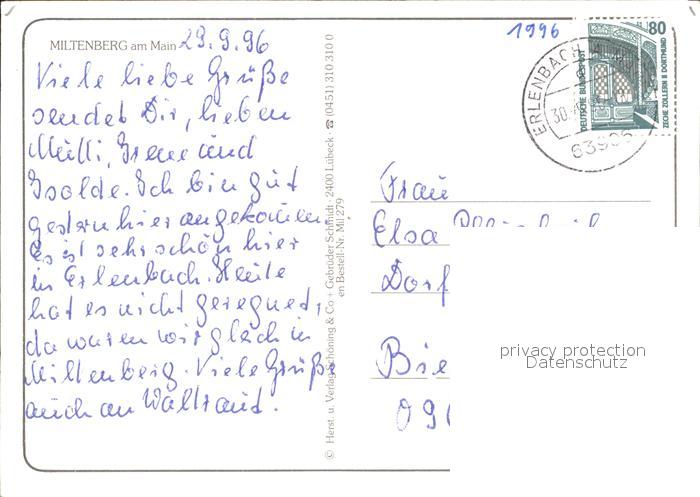 MILTENBERG am Main 29.9.96
Viele liebe Grüße
sendet Dir, lieben
Mülli, Irene und
Isolde. Ich bin gut
gestern hier angekommen
Es ist sehr schön hier
in Erlenbach. Heute
hat es nicht geregnet,
da waren wir gleich in
Miltenberg. Viele Grüße
auch an Waltraud.
© Herst. u. Verlag Schöning & Co + Gebrüder Schmidt · 2400 Lübeck ☎ (0451) 310 310 0
en Bestell-Nr. Mil 279
1996
80
DEUTSCHE BUNDESPOST
ZECHE ZOLLERN II DORTMUND
ERLENBACH A
30.
Frau
Elsa
Dorf
Bie
privacy protection
Datenschutz